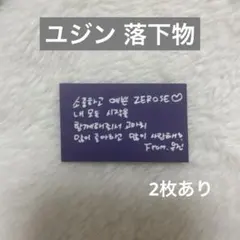 ユジン 落下物
소중하고 예쁜 ZEROSE♡
내 모든 시작을
함께해줘서 고마워
많이 좋아하고 많이 사랑해
From. 유진
2枚あり